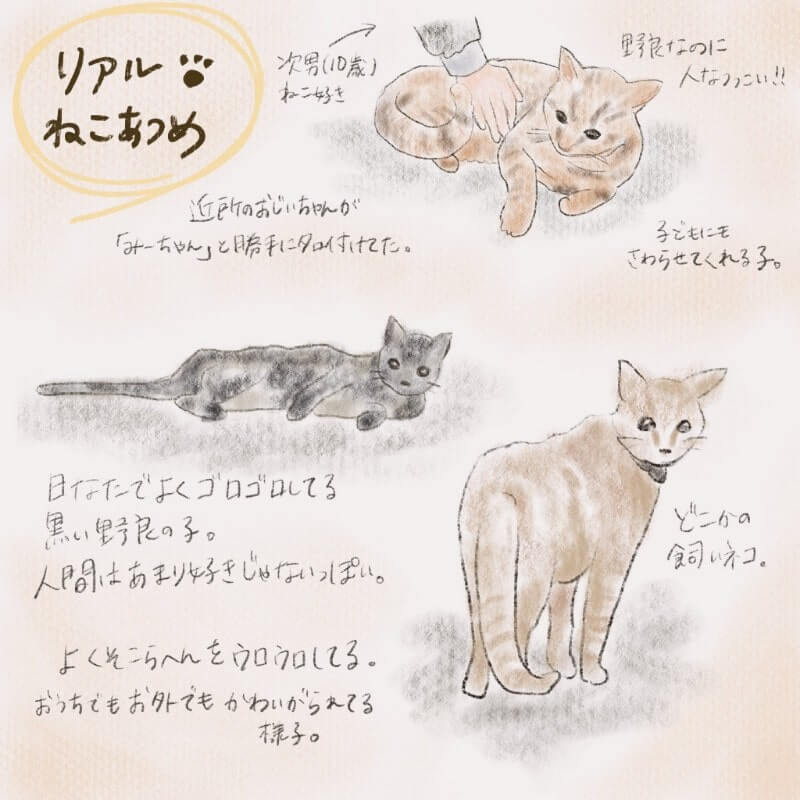 リアル
ねこあつめ
次男(10歳)
ねこ好き
野良なのに
人なつっこい!!
近所のおじいちゃんが
「みーちゃん」と勝手に名付けてた。
子どもにも
さわらせてくれる子。
日なたでよくゴロゴロしてる
黒い野良の子。
人間はあまり好きじゃないっぽい。
どこかの
飼いネコ。
よくそこらへんをウロウロしてる。
おうちでもお外でもかわいがられてる
様子。